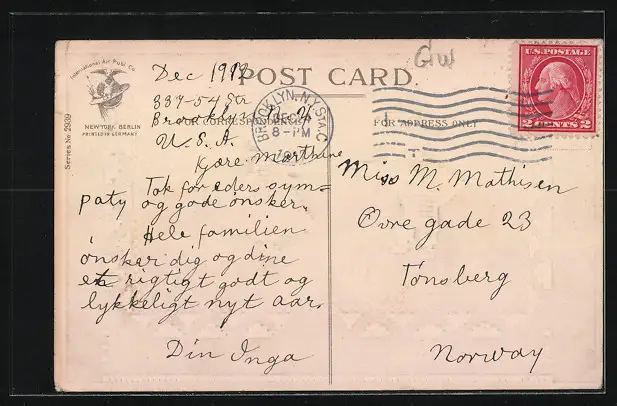 International Art Publ. Co.
NEW YORK BERLIN
PRINTED IN GERMANY
Series No 2939
POST CARD.
FOR CORRESPONDENCE
FOR ADDRESS ONLY
GW
U.S. POSTAGE
2 CENTS 2
BROOKLYN, N.Y. STA. C
DEC
8-PM
Dec 1912
339-54 Str
Brooklyn N.Y.
U.S.A.
Kjære Marthine
Tak for eders sym=
paty og gode ønsker.
Hele familien
ønsker dig og dine
et rigtigt godt og
lykkeligt nyt aar.
Din Inga
Miss M. Mathisen
Øvre gade 23
Tønsberg
Norway